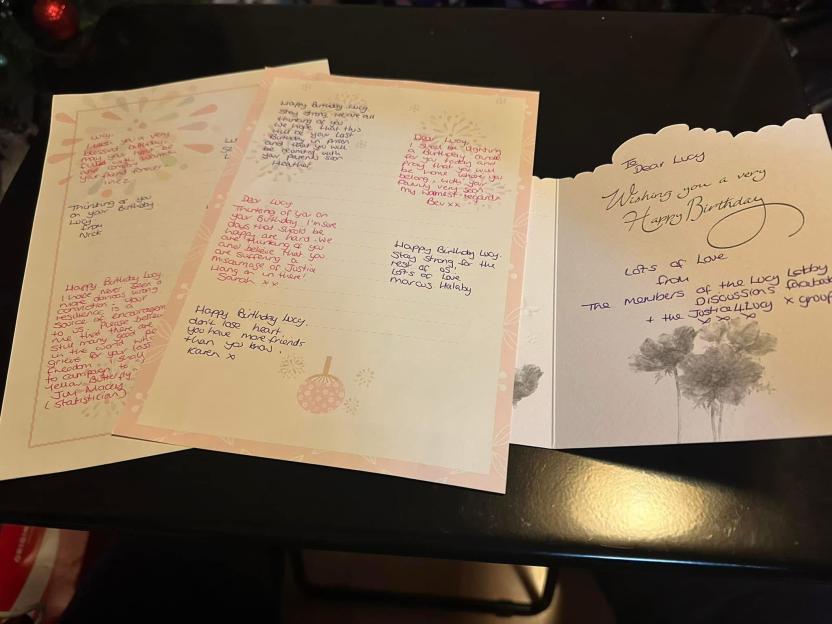 Lucy,
I wish you a very
blessed birthday
may you
your friend forever
Thinking of you
on your Birthday
Lucy
from
Nick
Happy Birthday Lucy.
I have never seen a
more obvious wrong
conviction. Your
resilience is a
source of encouragement
to us. Please believe
me that there are
still many good people
in the world who
grieve for your lost
freedom. I shall
to campaign
Yellow Butterfly.
Joy Macey
(Statistician)
Happy Birthday Lucy.
Stay strong. We are all
thinking of you
We hope that this
will be your last
Birthday in prison
and that you will
be reunited with
your parents soon
Heather
Dear Lucy
Thinking of you on
your Birthday. I'm sure
days that should be
happy are hard. We
are thinking of you
and believe that you
are suffering a
miscarriage of Justice
Hang on in there!
Sarah xx
Happy Birthday Lucy.
don't lose heart,
you have more friends
than you know.
Karen x
Dear Lucy,
I shall be lighting
a Birthday candle
for you today and
pray that you will
be home where you
belong, with your
family very soon
My warmest regards
Bev xx
Happy Birthday Lucy.
Stay strong for the
rest of us.
Lots of Love
Marcus Halaby
To Dear Lucy
Wishing you a very
Happy Birthday
Lots of Love
from
The members of the Lucy Letby
Discussions
+ the Justice4Lucy x group
x x x